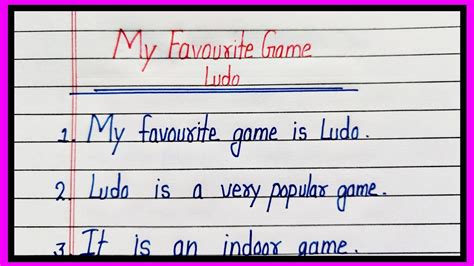 My Favourite Game
Ludo
1. My favourite game is Ludo.
2. Ludo is a very popular game.
3. It is an indoor game.